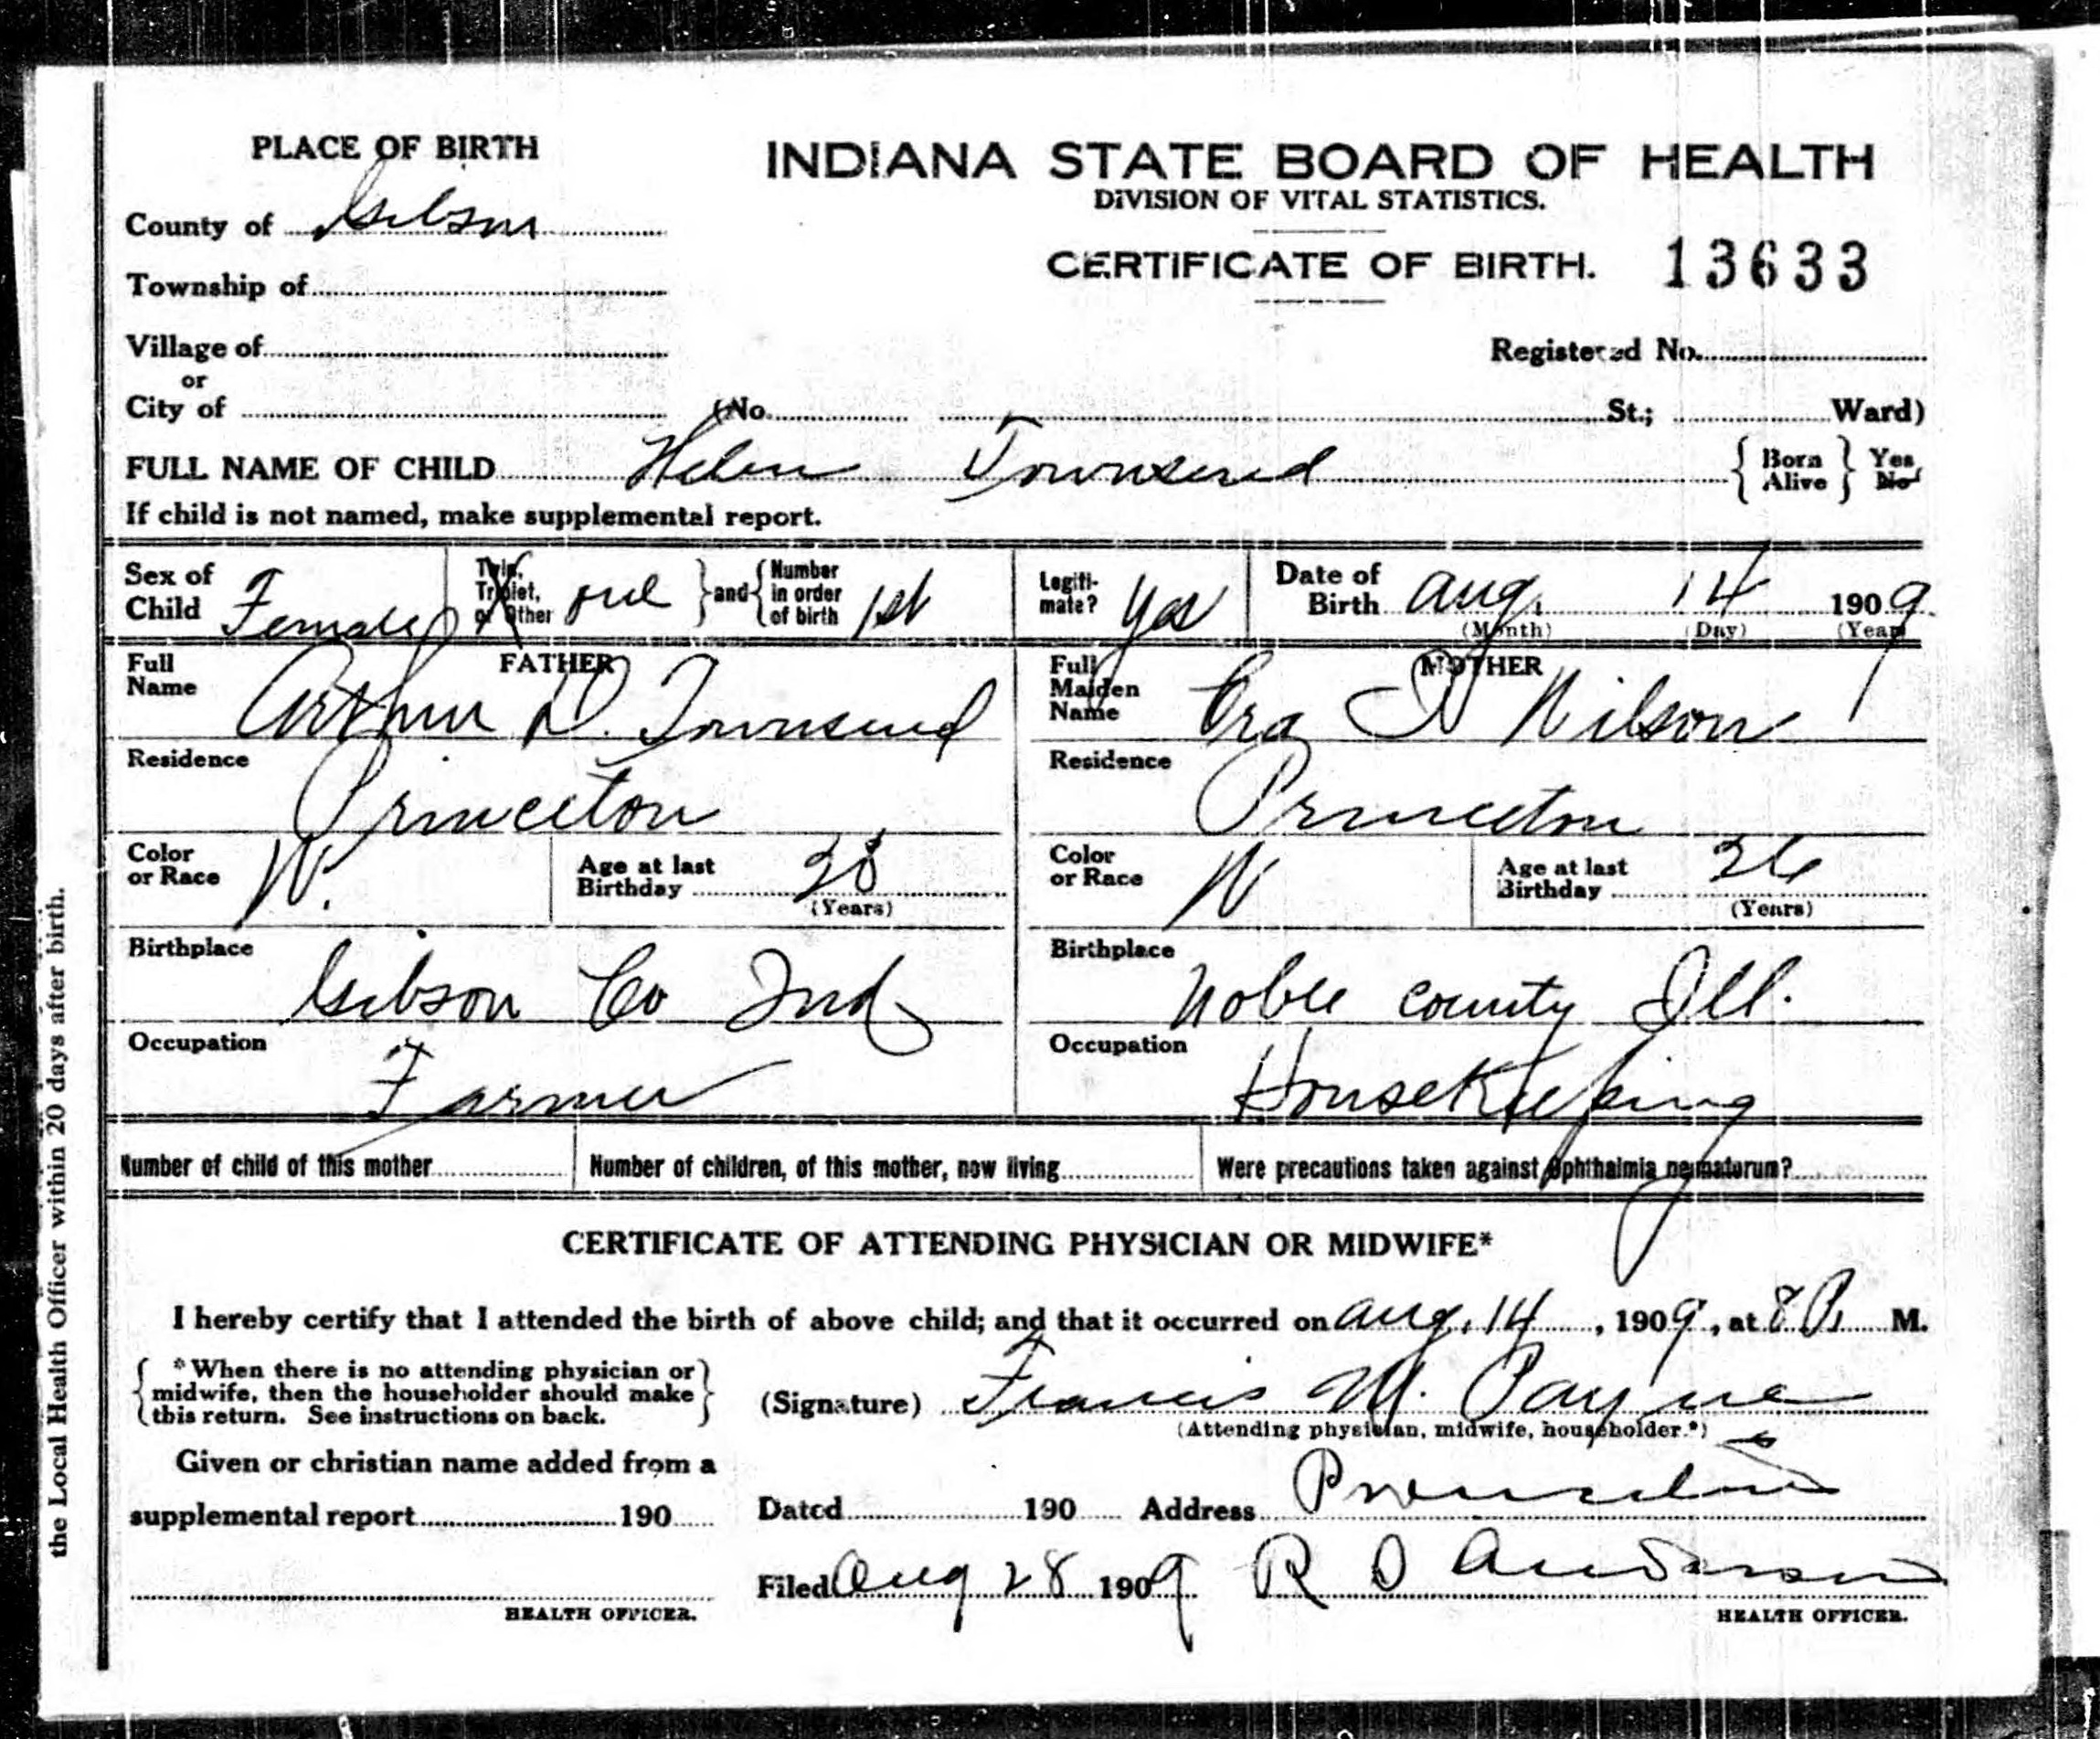 PLACE OF BIRTH
INDIANA STATE BOARD OF HEALTH
DIVISION OF VITAL STATISTICS.
County of Gibson
CERTIFICATE OF BIRTH. 13633
Township of
Village of
Registered No.
or
City of (No. St.; Ward)
FULL NAME OF CHILD Helen Townsend { Born Alive } Yes No
If child is not named, make supplemental report.
Sex of Child Female Twin, Triplet, or Other one } and { Number in order of birth 1st Legitimate? Yes Date of Birth Aug. 14 1909
(Month) (Day) (Year)
FATHER MOTHER
Full Name Arthur D. Townsend Full Maiden Name Wilson
Residence Princeton Residence Princeton
Color or Race W. Age at last Birthday (Years) Color or Race W Age at last Birthday 26 (Years)
Birthplace Gibson Co Ind Birthplace Noble county Ill.
Occupation Farmer Occupation Housekeeping
Number of child of this mother Number of children, of this mother, now living Were precautions taken against ophthalmia neonatorum?
CERTIFICATE OF ATTENDING PHYSICIAN OR MIDWIFE*
I hereby certify that I attended the birth of above child; and that it occurred on Aug. 14, 1909, at 8 P. M.
{ *When there is no attending physician or
midwife, then the householder should make
this return. See instructions on back. }
(Signature) Francis M. Payne
(Attending physician, midwife, householder.*)
Given or christian name added from a
supplemental report 190
Dated 190 Address Princeton
Filed Aug 28 1909 R D Anderson
HEALTH OFFICER. HEALTH OFFICER.
the Local Health Officer within 20 days after birth.